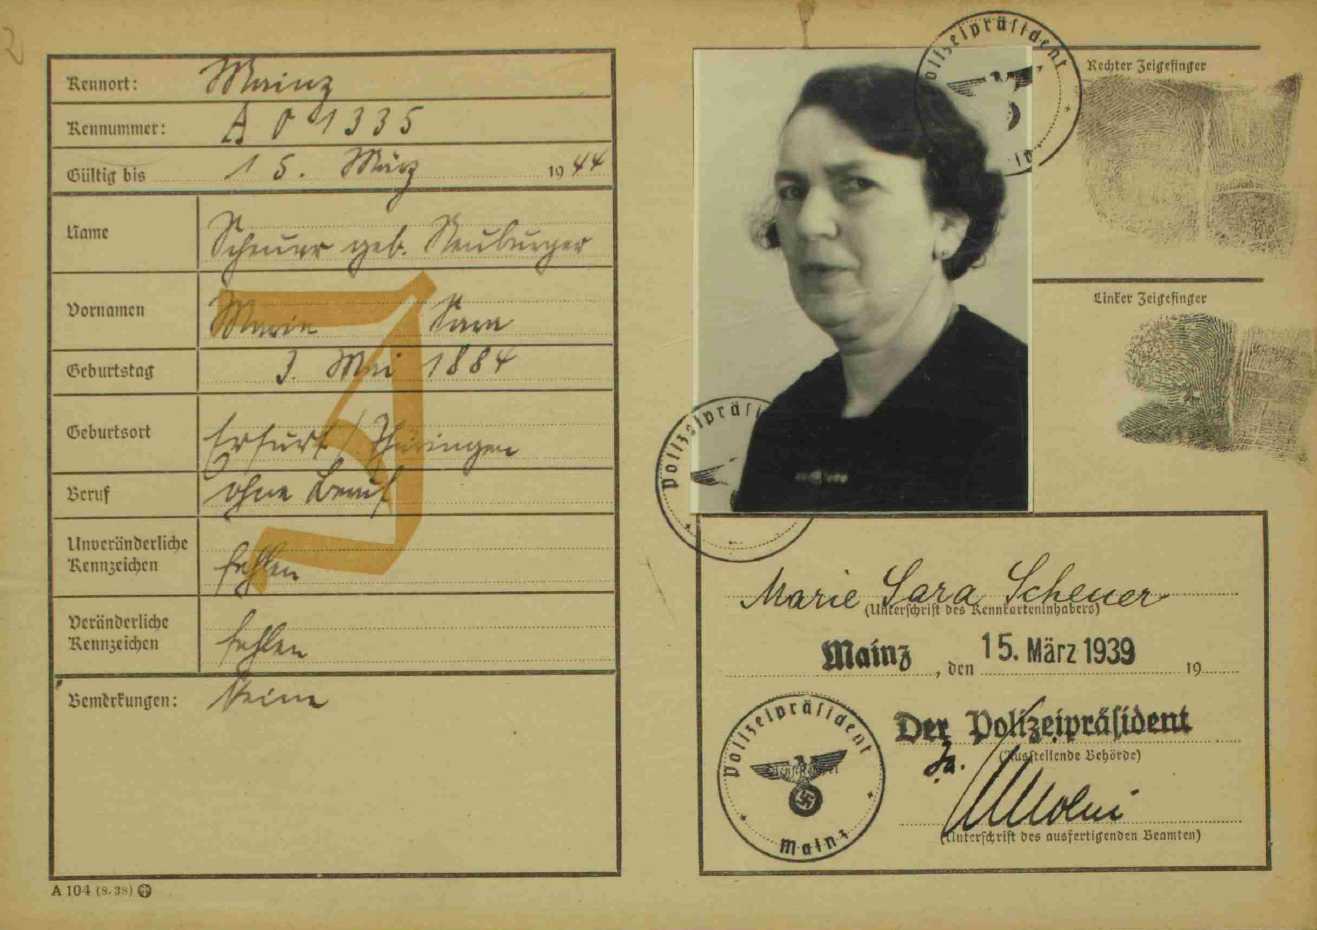 2
Kennort: Mainz
Kennummer: A 01335
Gültig bis 15. März 1944
Name Scheuer geb. Neuburger
Vornamen Marie Sara
J
Geburtstag 3. Mai 1884
Geburtsort Erfurt / Thüringen
Beruf ohne Beruf
Unveränderliche
Kennzeichen fehlen
Veränderliche
Kennzeichen fehlen
Bemerkungen: Keine
A 104 (8. 38)
Polizeipräsident
Rechter Zeigefinger
Linker Zeigefinger
Polizeipräsi
Marie Sara Scheuer
(Unterschrift des Kennkarteninhabers)
Mainz, den 15. März 1939 19
Polizeipräsident
Mainz
Der Polizeipräsident
(Ausstellende Behörde)
(Unterschrift des ausfertigenden Beamten)